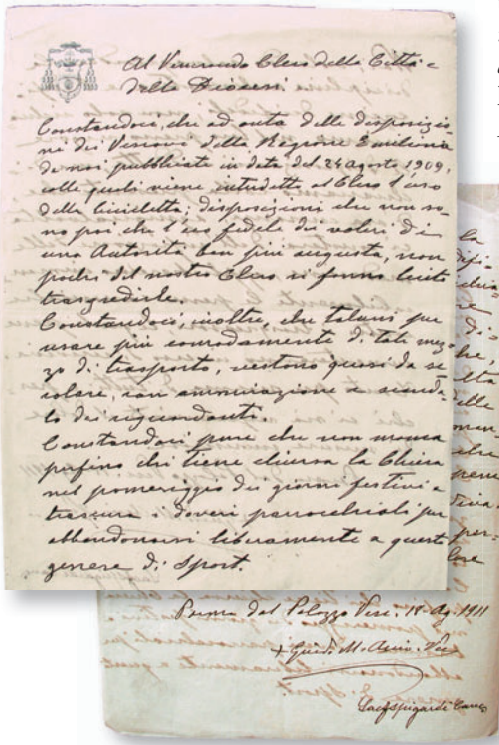 Al Venerando Clero della Città e
della Diocesi
Constandoci, che ad onta delle disposizio-
ni dei Vescovi della Regione Emiliana
da noi pubblicate in data del 24 agosto 1909,
colle quali viene interdetto al Clero l'uso
della bicicletta; disposizioni che non so-
no poi che l'eco fedele dei voleri di
una Autorità ben più augusta, non
pochi del nostro Clero si fanno lecito
trasgredirle.
Constandoci, inoltre che taluni per
usare più comodamente di tale mez-
zo di trasporto, vestono quasi da se-
colare, con ammirazione e scanda-
lo dei riguardanti.
Constandoci pure che non manca
perfino chi tiene chiusa la Chiesa
nel pomeriggio dei giorni festivi e
trascura i doveri parrocchiali per
abbandonarsi liberamente a questo
genere di Sport.
la
che
delle
Parma dal Palazzo Vesc. 18. Ag. 1911
+ Guido M. Vesc